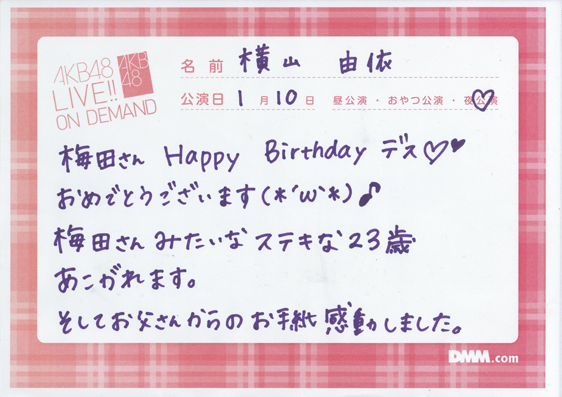 AKB48
LIVE!!
ON DEMAND
AKB
48
名前 横山 由依
公演日 1月10日 昼公演・おやつ公演・夜公演
梅田さん Happy Birthday デス♡♥
おめでとうございます(*´ω`*)♪
梅田さんみたいなステキな23歳
あこがれます。
そしてお父さんからのお手紙感動しました。
DMM.com